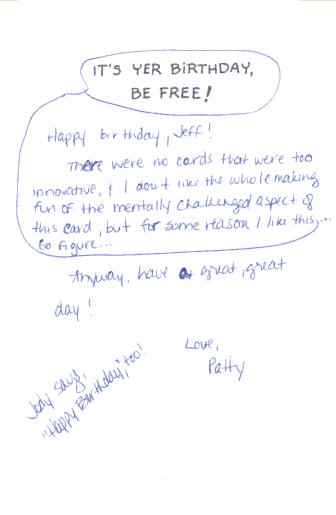 IT'S YER BIRTHDAY,
BE FREE!
Happy birthday, Jeff!
There were no cards that were too
innovative, & I don't like the whole making
fun of the mentally challenged aspect of
this card, but for some reason I like this,...
Go figure...
Anyway, have a great, great
day!
Love,
Patty
Jody says,
"Happy Birthday", too!